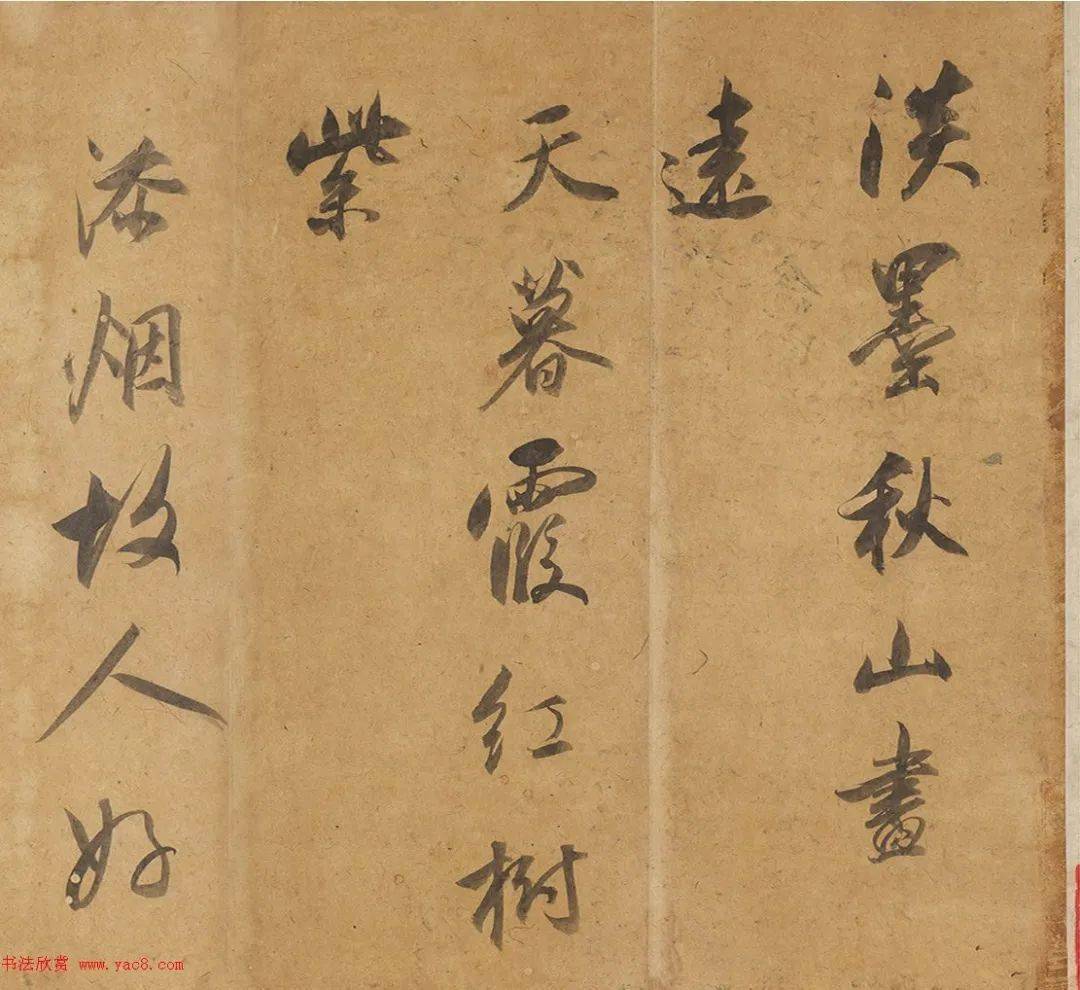 淡墨秋山畫
遠
天暮霞紅樹
紫
添烟故人好
书法欣赏 www.yac8.com